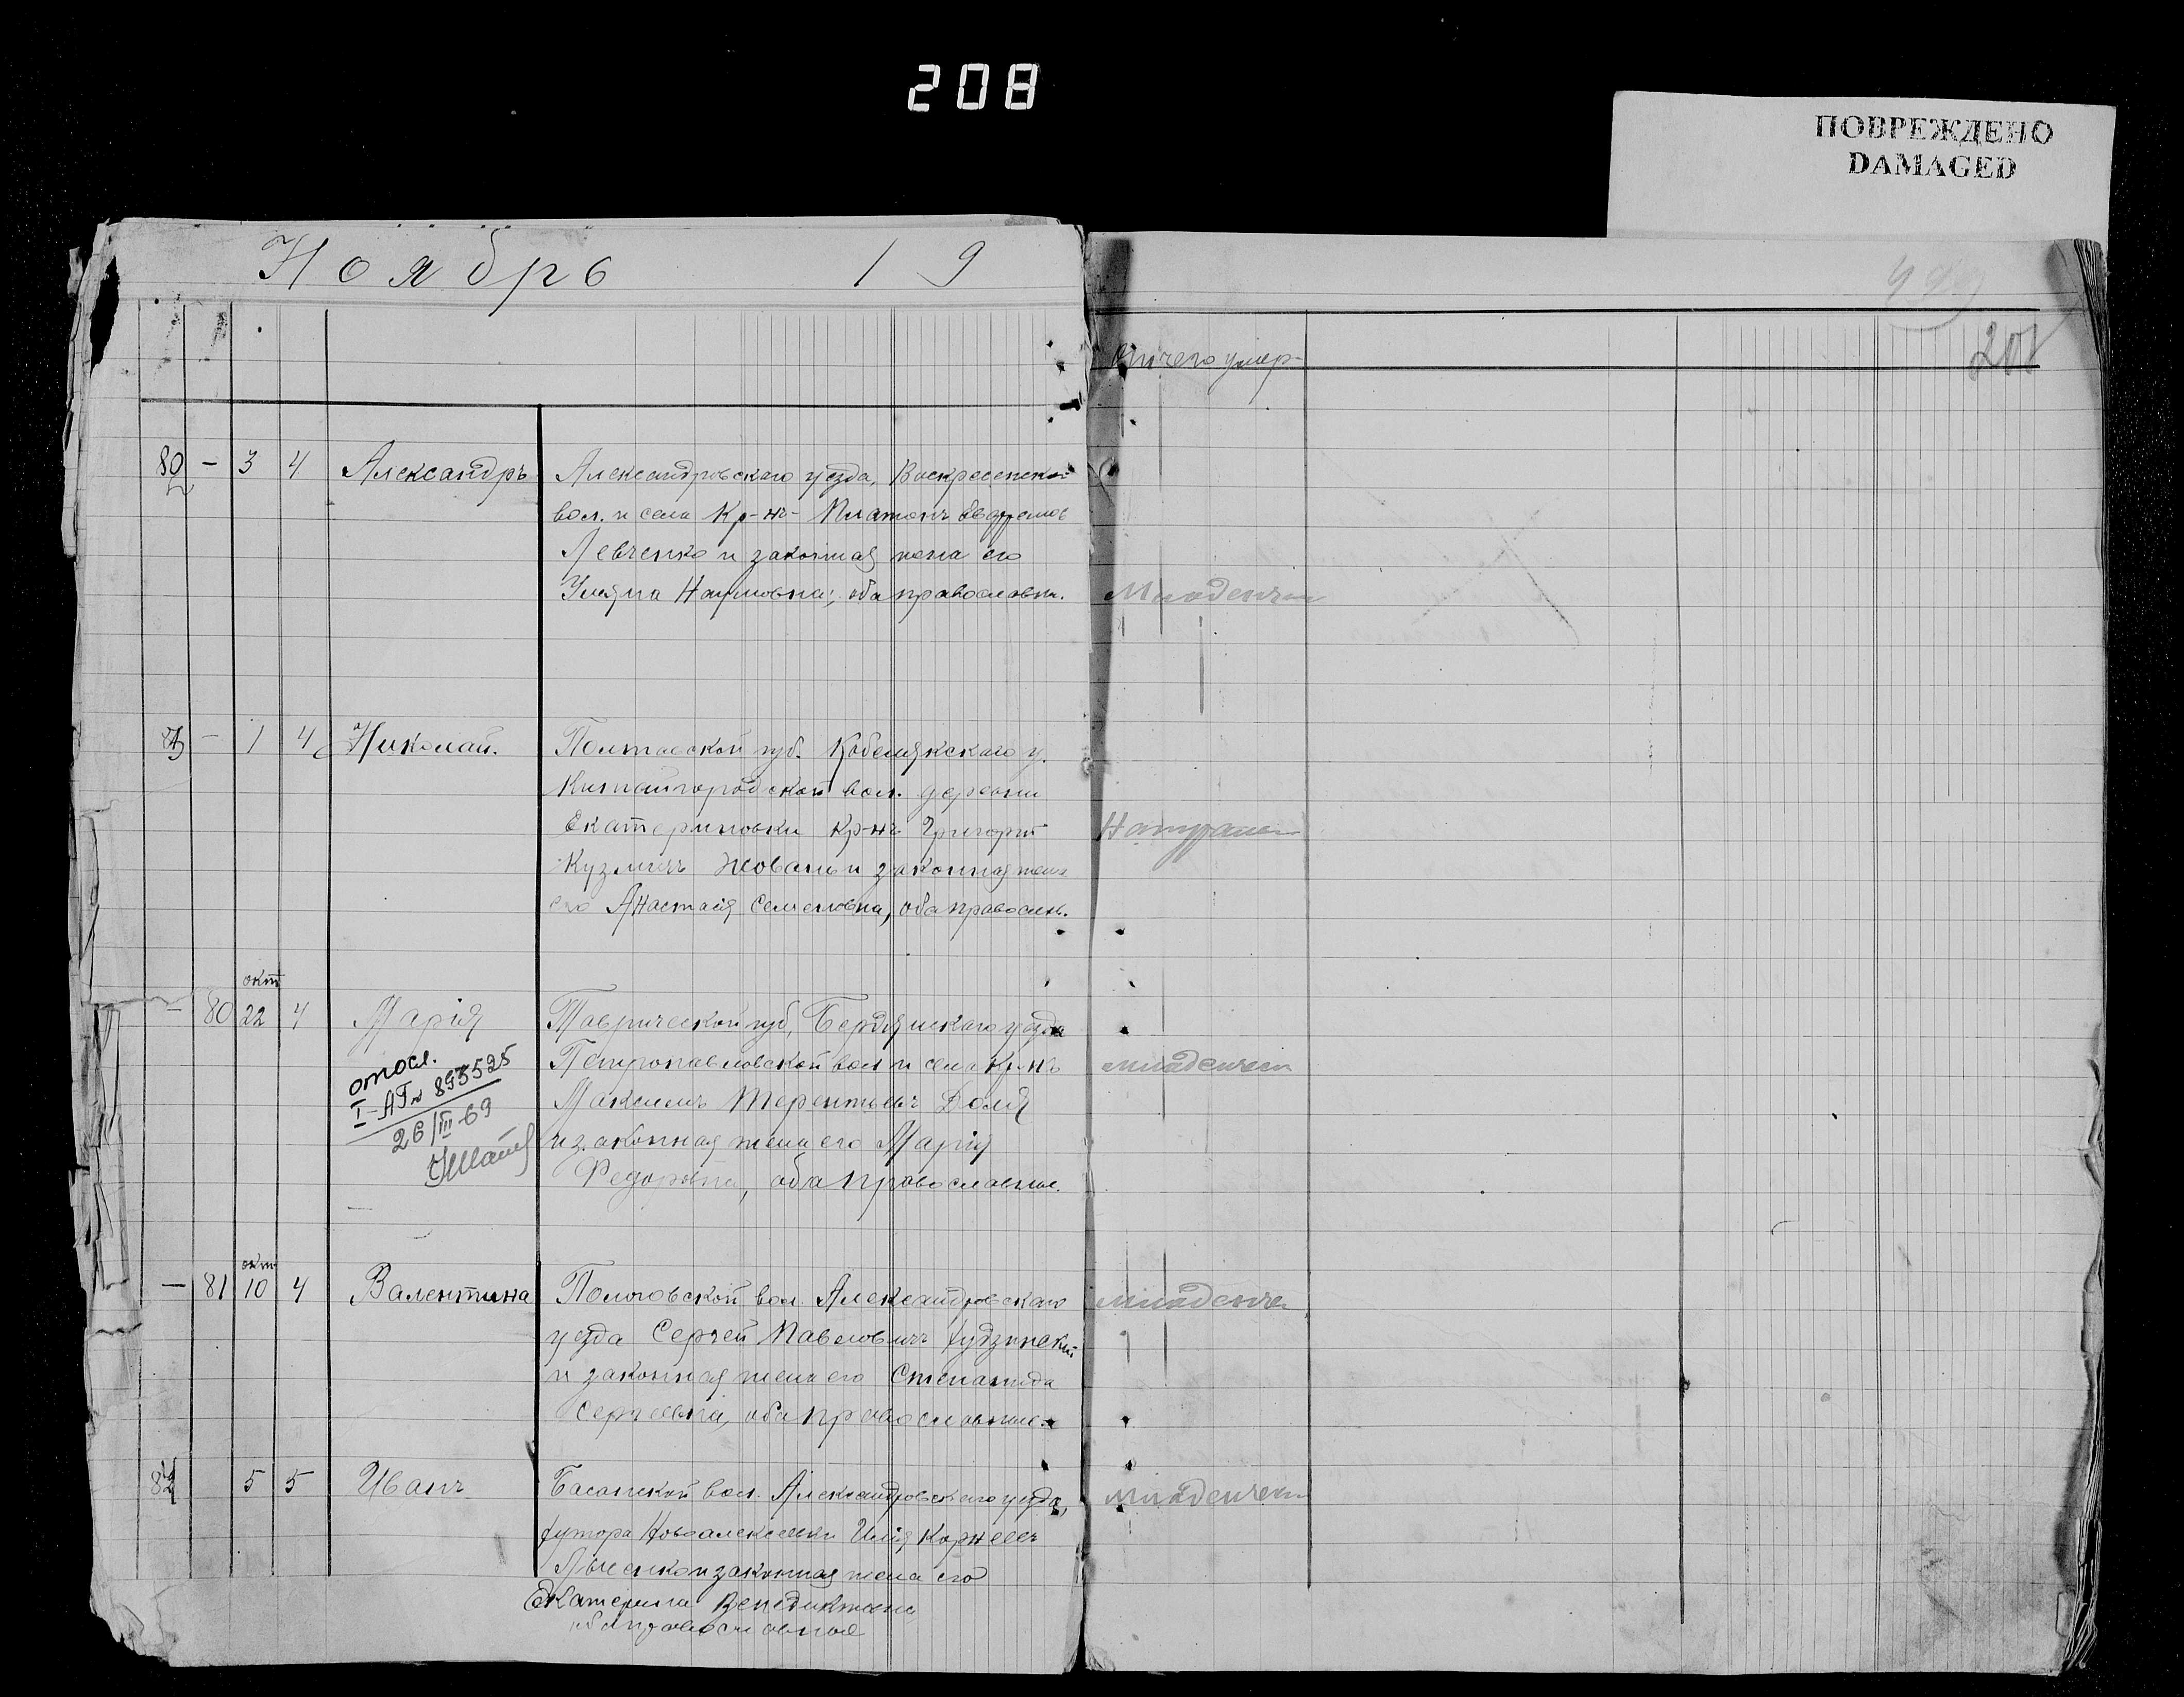 208
ПОВРЕЖДЕНО
DAMAGED
Ноябрь 19
201
отчего умер-
80 - 3 4 Александръ Александровскаго уезда, Воскресенской
вол. и села Кр-нъ- Платонъ
Левченко и законная жена его
Наумовна; оба православн.
- 1 4 Николай. Полтавской губ. Кобелякскаго у.
Китайгородской вол. деревни
Екатериновки кр-нъ Григорій
Кузмичъ и законная жена
его Анастасія Семеновна, оба правосл.
окт
- 80 22 4 Марія Таврической губ, Бердянскаго уезда
Петропавловской вол и села Кр-нъ
Максимъ Терентьевъ Доля
и законная жена его Марія
Федоровна, оба православные.
отосл.
I-АП № 893525
26/III-69
окт
- 81 10 4 Валентина Пологовской вол. Александровскаго
уезда Сергей Павловичъ
и законная жена его Степанида
Сергеевна, оба православные.
5 5 Иванъ Басанской вол. Александровскаго уезда,
хутора Новоалексеевки Илія Корнеевъ
и законная жена его
Екатерина Венедиктовна
оба православные